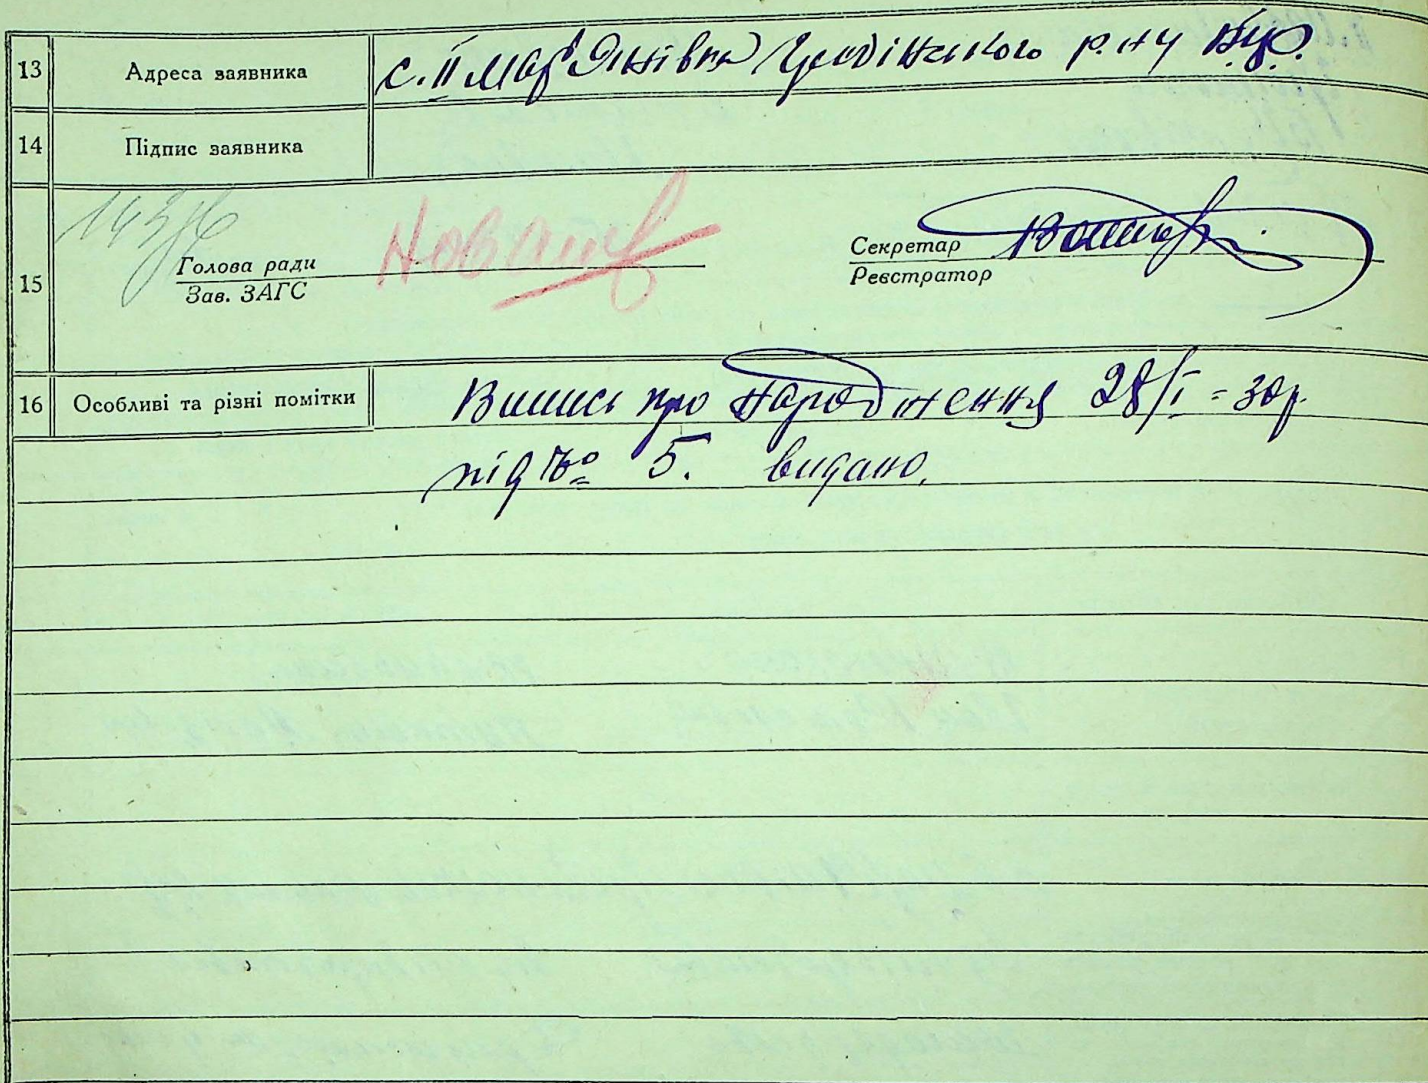 13 Адреса заявника с. ІІ Мар'янівка р-ну
14 Підпис заявника
15 Голова ради
Зав. ЗАГС
Секретар
Реєстратор
16 Особливі та різні помітки Випись про народження 28/I-30р.
під № 5. видано.